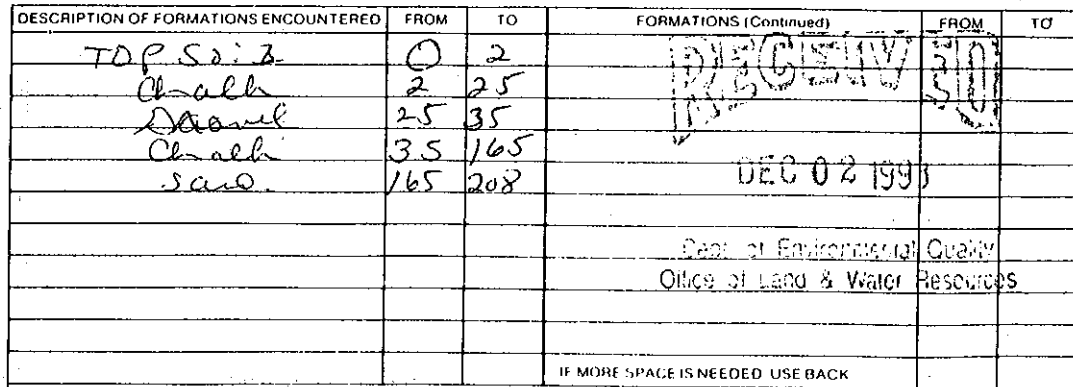 DESCRIPTION OF FORMATIONS ENCOUNTERED FROM TO FORMATIONS (Continued) FROM TO
TOP Soil 0 2
Chalk 2 25
Gravel 25 35
Chalk 35 165
Sand 165 208
RECEIVED
DEC 02 1993
Dept. of Environmental Quality
Office of Land & Water Resources
IF MORE SPACE IS NEEDED USE BACK